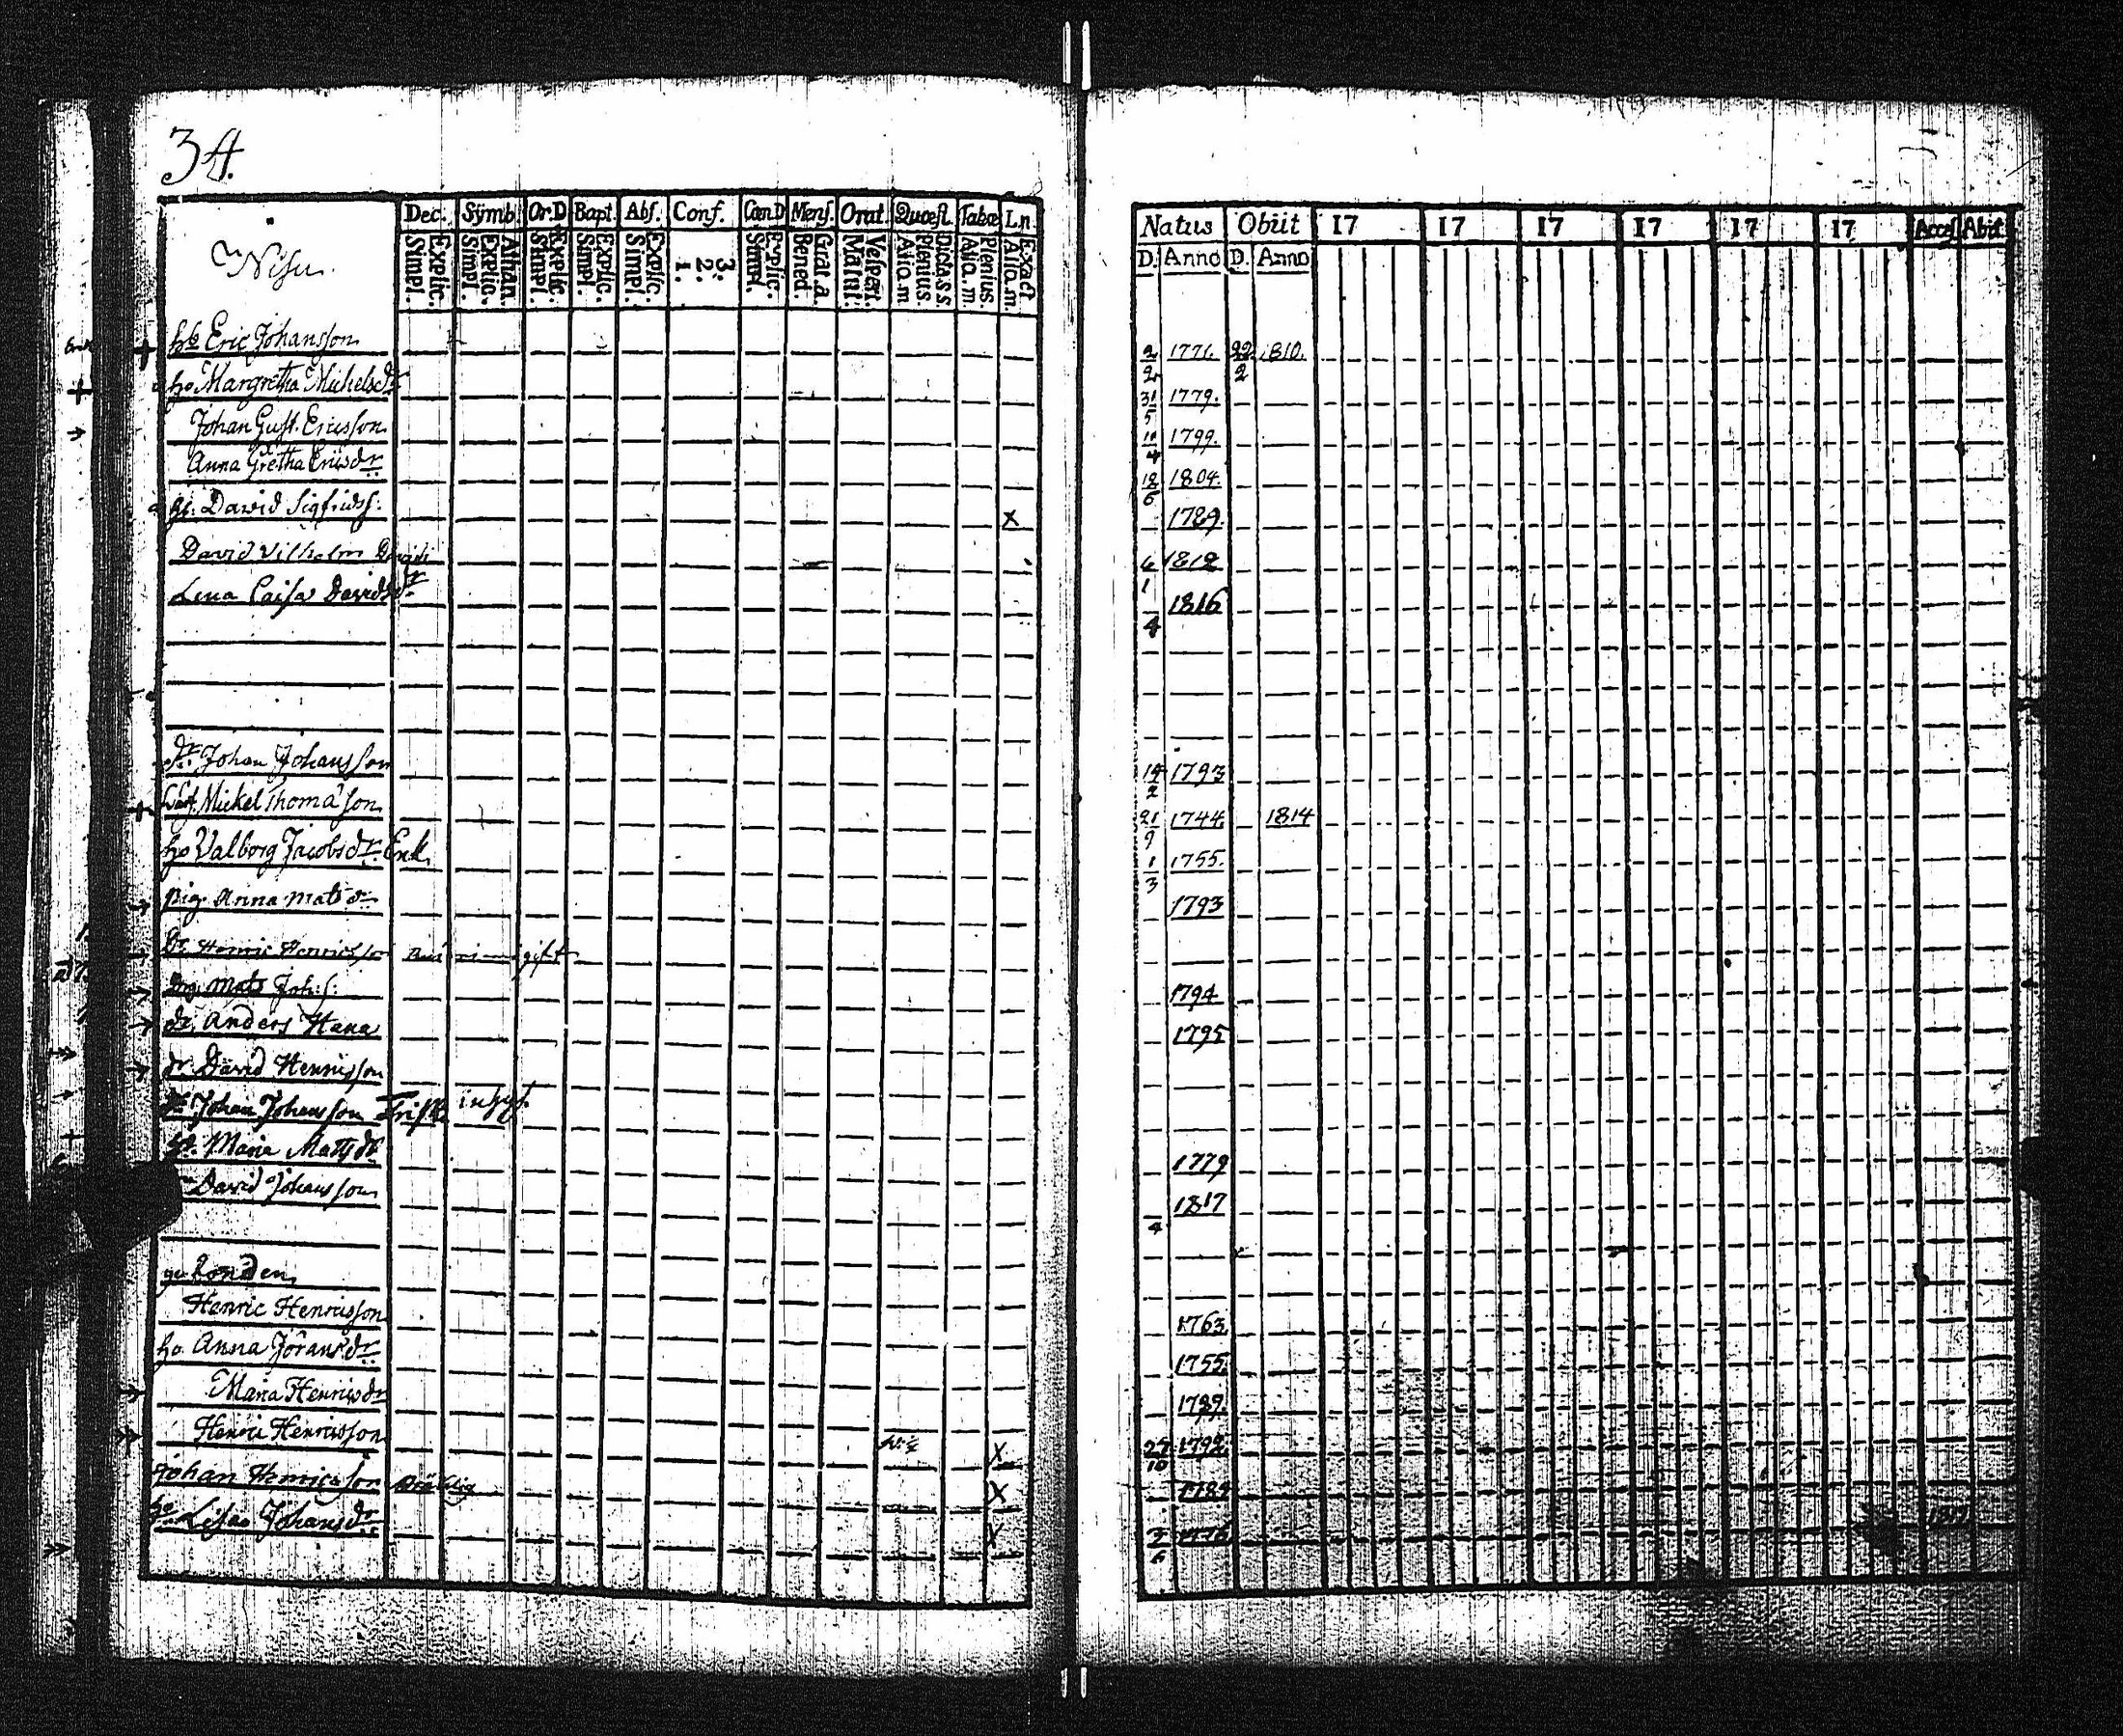 34.
Dec. Symb. Or.D Bapt. Abs. Conf. Can.D Mens. Orat. Quæst. Tabæ L.n.
Explic. Simpl. Athan. Explic. Simpl. Explic. Simpl. Explic. Simpl. Explic. Simpl. 3. 2. 1. Explic. Simpl. Grat. a. Bened. Vespert. Matut. Dicta s.s. Plenius. Aliq. m. Plenius. Aliq. m. Exact Aliq. m.
Natus Obiit 17 17 17 17 17 17 Acces Abiit
D. Anno D. Anno
Nisu
hb Eric Johansson 2/2 1771. 22/2 1810.
ho Margretha Michelsdr 31/5 1779.
Johan Gust. Ericsson 10/4 1799.
Anna Gretha Ericsdr 18/6 1804.
David Sigfridss: x 1789.
David Vilhelm Davids 6/1 1812
Lena Caisa Davidsdr /4 1816
dr. Johan Johansson 14/2 1793
Mickel Thomasson 21/9 1744. 1814
ho Valborg Jacobsdr. Enk. 1/3 1755.
pig. Anna Matsdr 1793
Dr. Henric Henricsson gift
Drg. Mats Johs: 1794
dr. Anders Hana 1795
dr. David Henricsson
dr Johan Johansson Frisk inhys.
Maria Mattsdr 1779
David Johansson /4 1817
Londen
Henric Henricsson 1763.
ho. Anna Jöransdr 1755.
Maria Henricsdr 1789.
Henric Henricsson x 27/10 1792.
Johan Henricsson x
ho. Lisa Johansdr x 1817